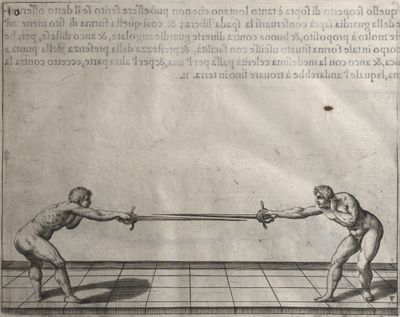 quello scoperto di sopra è tanto lontano che non può essere ferito se il detto
della guardia saprà conseruarsi la spada libera, & così questa forma di sito uiene
re molto à proposito, & buona contra diuerse guardie angolate, & anco distese, perche
corpo in tale forma situato con facilità, & prestezza dalla presenza della punta
& anco con la medesima celerità passa per l'una, & per l'altra parte eccetto contra la
na, la quale l'andarebbe à trouare sino in terra. 11